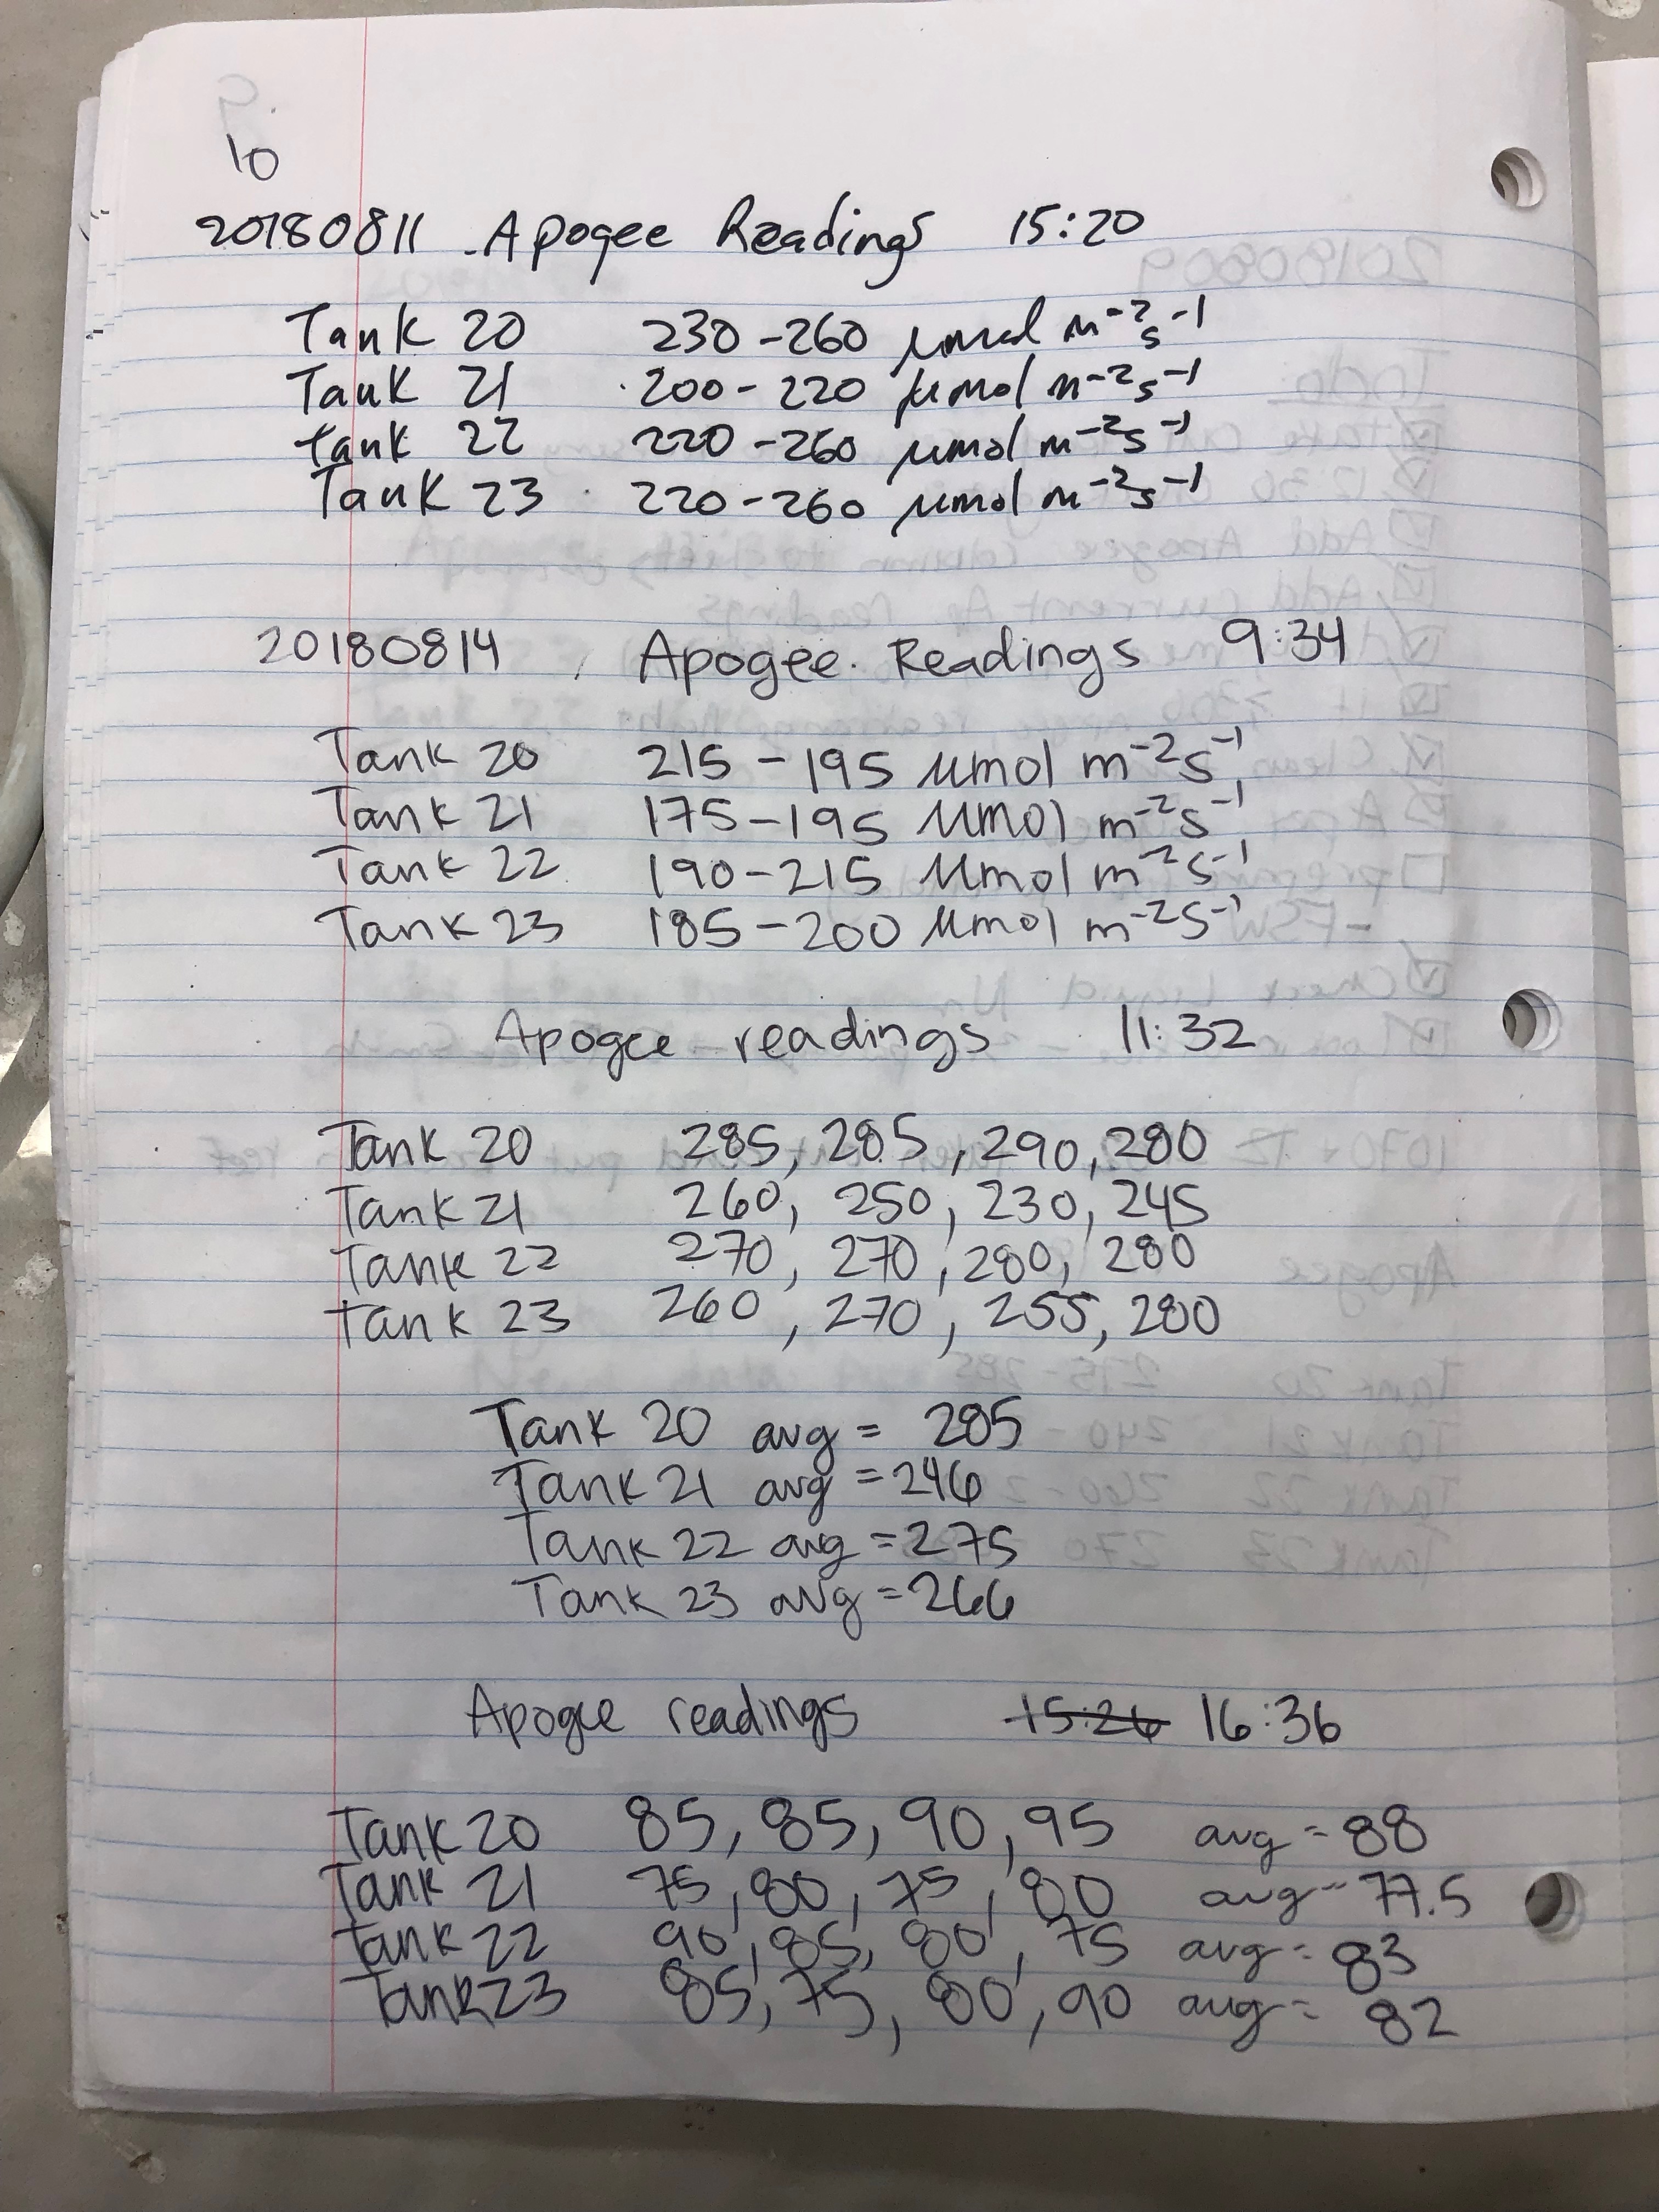 10
20180811 Apogee Readings 15:20
Tank 20 230-260 µmol m⁻²s⁻¹
Tank 21 200-220 µmol m⁻²s⁻¹
Tank 22 220-260 µmol m⁻²s⁻¹
Tank 23 220-260 µmol m⁻²s⁻¹
20180814 Apogee Readings 9:34
Tank 20 215-195 µmol m⁻²s⁻¹
Tank 21 175-195 µmol m⁻²s⁻¹
Tank 22 190-215 µmol m⁻²s⁻¹
Tank 23 185-200 µmol m⁻²s⁻¹
Apogee readings 11:32
Tank 20 285, 285, 290, 280
Tank 21 260, 250, 230, 245
Tank 22 270, 270, 280, 280
Tank 23 260, 270, 255, 280
Tank 20 avg = 285
Tank 21 avg = 246
Tank 22 avg = 275
Tank 23 avg = 266
Apogee readings 15:26 16:36
Tank 20 85, 85, 90, 95 avg = 88
Tank 21 75, 80, 75, 80 avg = 77.5
Tank 22 90, 85, 80, 75 avg = 83
Tank 23 85, 75, 80, 90 avg = 82